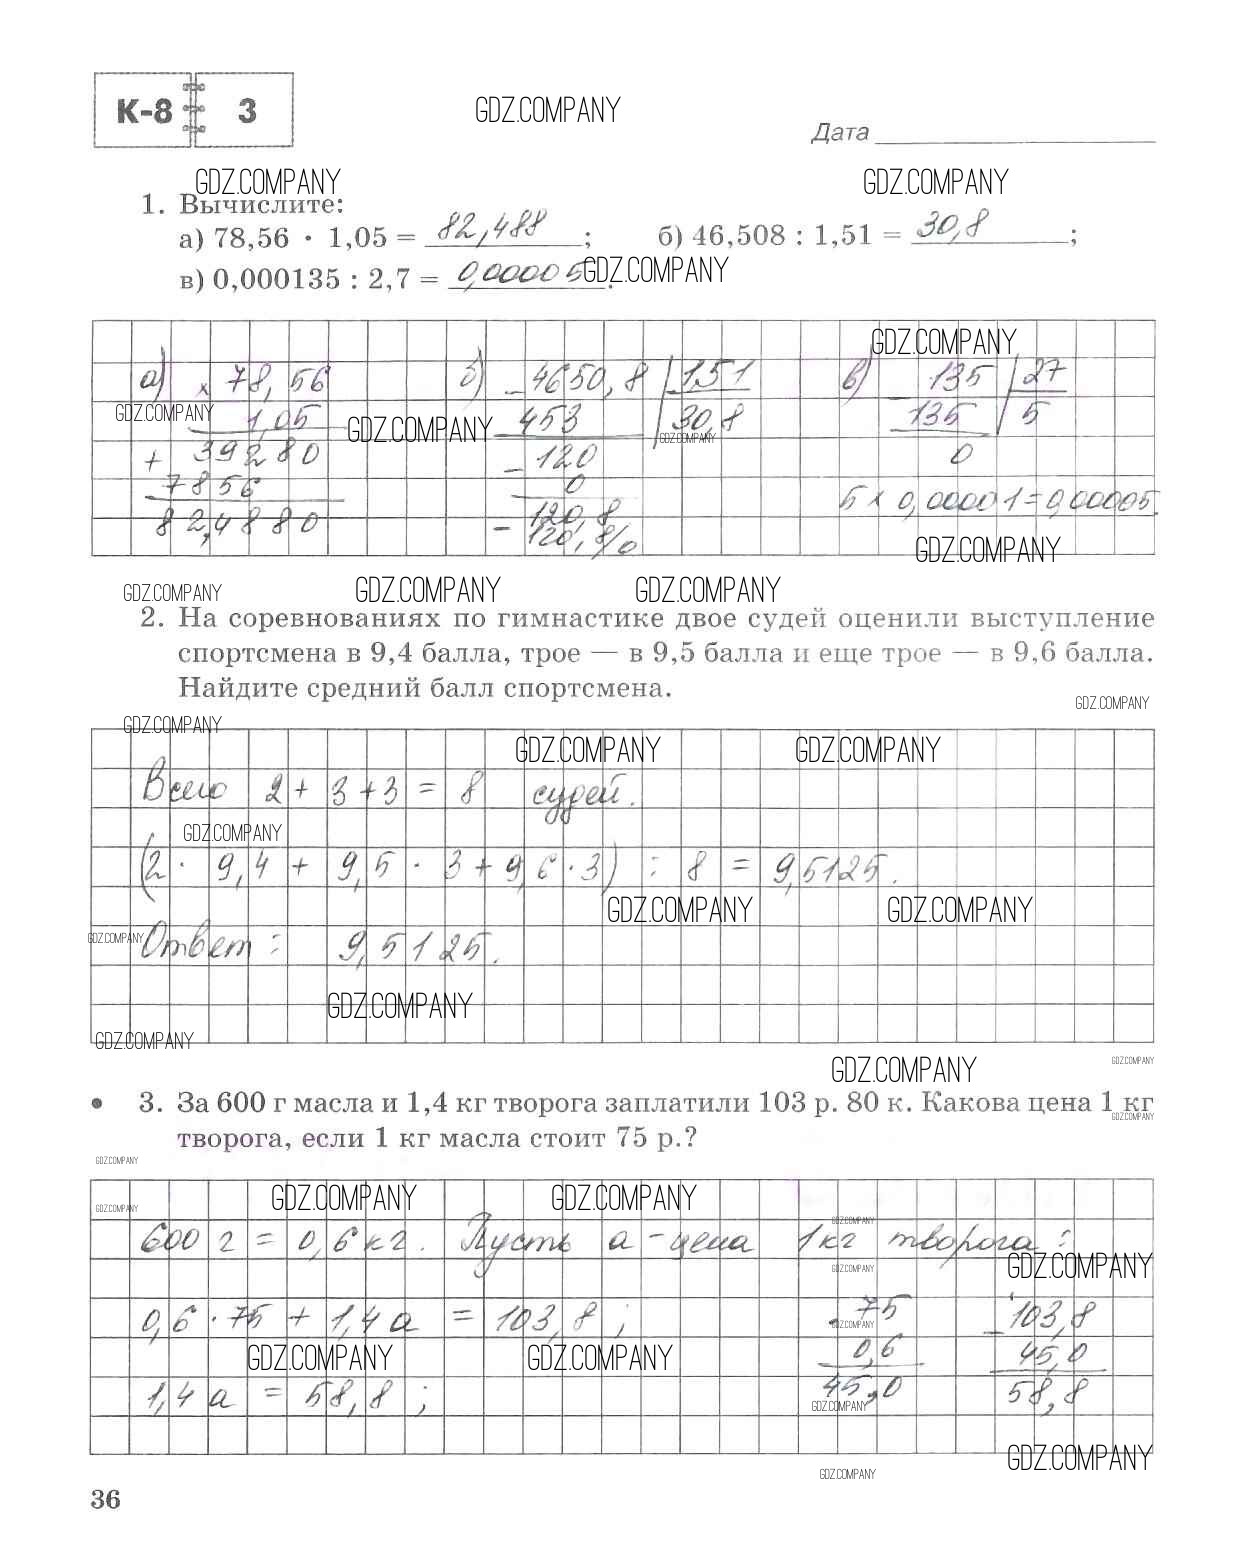 К-8 3
GDZ.COMPANY
Дата
GDZ.COMPANY GDZ.COMPANY
1. Вычислите:
а) 78,56 · 1,05 = 82,488; б) 46,508 : 1,51 = 30,8;
в) 0,000135 : 2,7 = 0,00005. GDZ.COMPANY
GDZ.COMPANY
а) × 78,56 б) – 4650,8 151 в) – 135 27
GDZ.COMPANY 1,05 GDZ.COMPANY 453 30,8 135 5
GDZ.COMPANY
+ 39280 – 120 0
7856 0 5 × 0,00001 = 0,00005.
82,4880 – 120,8
120,8/0
GDZ.COMPANY
GDZ.COMPANY GDZ.COMPANY GDZ.COMPANY
2. На соревнованиях по гимнастике двое судей оценили выступление
спортсмена в 9,4 балла, трое — в 9,5 балла и еще трое — в 9,6 балла.
Найдите средний балл спортсмена.
GDZ.COMPANY
GDZ.COMPANY
GDZ.COMPANY GDZ.COMPANY
Всего 2 + 3 + 3 = 8 судей.
GDZ.COMPANY
(2 · 9,4 + 9,5 · 3 + 9,6 · 3) : 8 = 9,5125.
GDZ.COMPANY GDZ.COMPANY
GDZ.COMPANY
Ответ: 9,5125.
GDZ.COMPANY
GDZ.COMPANY
GDZ.COMPANY GDZ.COMPANY
• 3. За 600 г масла и 1,4 кг творога заплатили 103 р. 80 к. Какова цена 1 кг
GDZ.COMPANY
творога, если 1 кг масла стоит 75 р.?
GDZ.COMPANY
GDZ.COMPANY GDZ.COMPANY GDZ.COMPANY
GDZ.COMPANY
600 г = 0,6 кг. Пусть а – цена 1 кг творога:
GDZ.COMPANY GDZ.COMPANY
0,6 · 75 + 1,4 а = 103,8; 75 – 103,8
GDZ.COMPANY
GDZ.COMPANY GDZ.COMPANY 0,6 45,0
1,4 а = 58,8; 45,0 58,8
GDZ.COMPANY
GDZ.COMPANY
GDZ.COMPANY
36